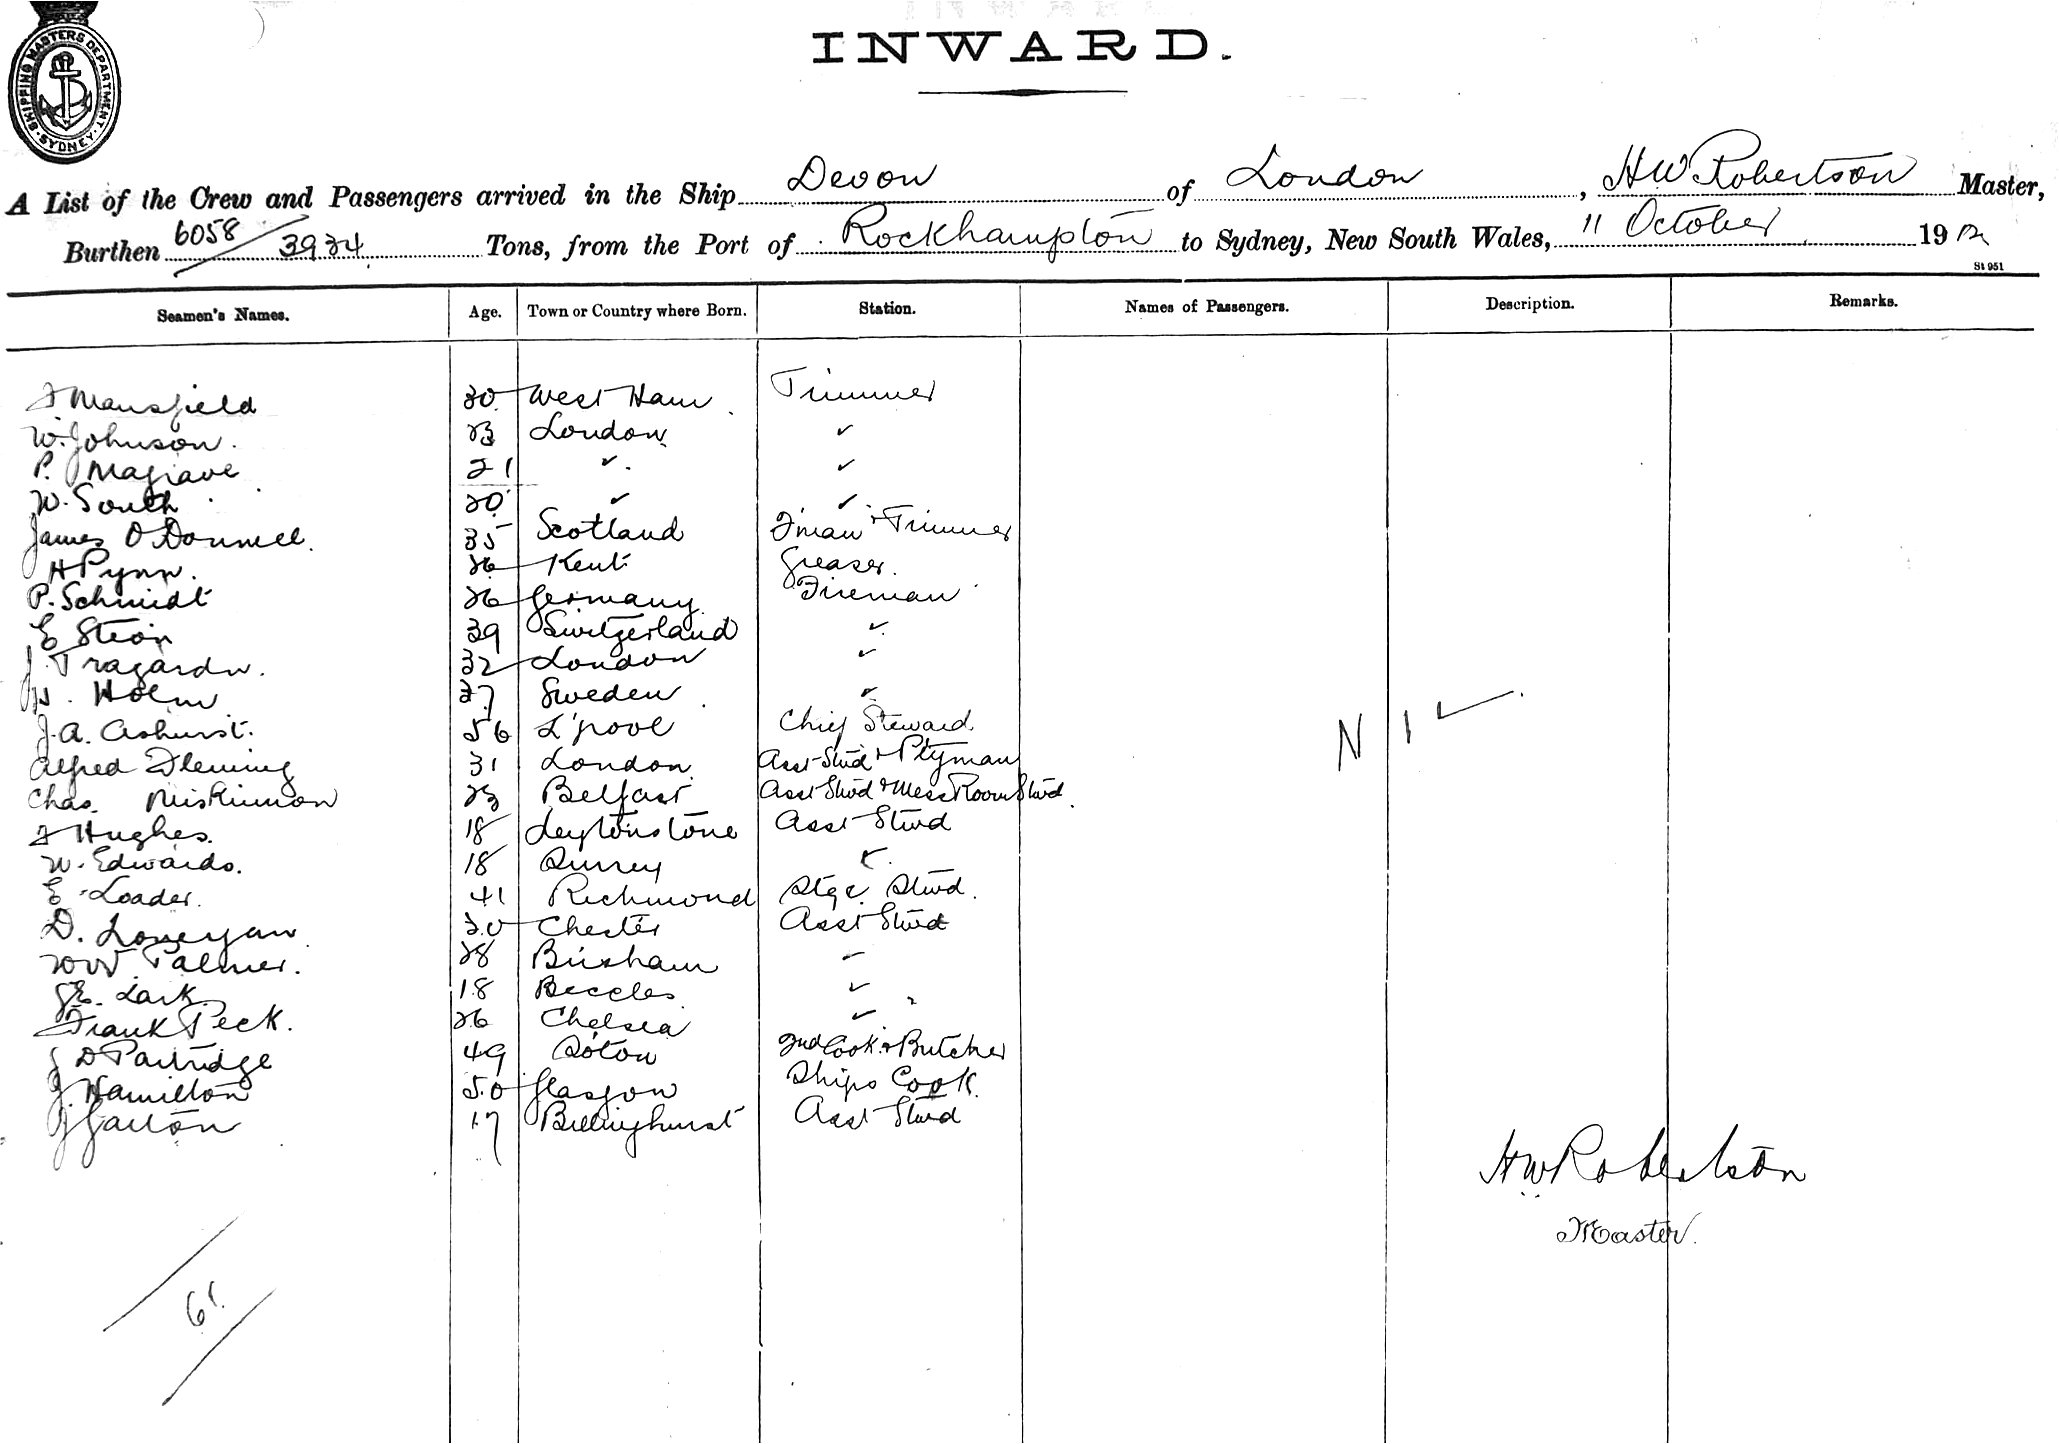 SHIPPING MASTERS DEPARTMENT. SYDNEY.
INWARD.
A List of the Crew and Passengers arrived in the Ship Devon of London, H W Robertson Master,
Burthen 6058 / 3924 Tons, from the Port of Rockhampton to Sydney, New South Wales, 11 October 1912
St 951
Seamen's Names. Age. Town or Country where Born. Station. Names of Passengers. Description. Remarks.
F Mansfield 30 West Ham Trimmer
W. Johnson. 23 London ✓
P. Magrave 21 ✓ ✓
W. South 20 ✓ ✓
James O'Donnell. 35 Scotland F'man & Trimmer
H Pynn. 26 Kent Greaser.
P. Schmidt 26 Germany Fireman
E Stein 39 Switzerland ✓
J. Tragardn. 32 London ✓
H. Holm 27 Sweden ✓
J. A. Ashurst. 56 L'pool Chief Steward
Alfred Fleming 31 London Asst Stwd & Ptyman
Chas. 23 Belfast Asst Stwd & Mess Room Stwd.
F Hughes. 18 Leytonstone Asst Stwd
W. Edwards. 18 Surrey ✓
E Loader. 41 Richmond Stge. Stwd.
D. Lonergan 20 Chester Asst Stwd
W Palmer. 28 ✓
Lark. 18 Beccles ✓
Frank Peck. 26 Chelsea ✓
J D Partridge 49 Soton 2nd Cook & Butcher
J. Hamilton 50 Glasgow Ships Cook.
J Garton 17 Billinghurst Asst Stwd
NIL
H W Robertson
Master.
61.